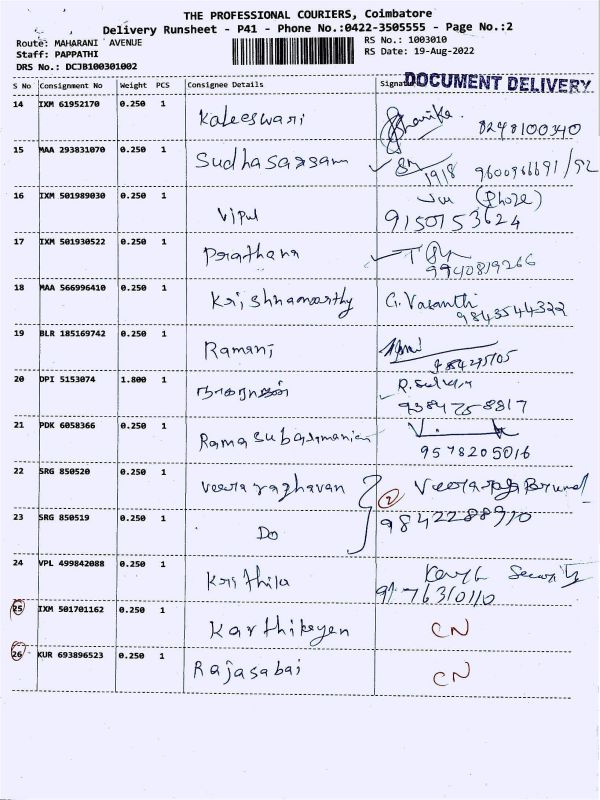 THE PROFESSIONAL COURIERS, Coimbatore
Delivery Runsheet - P41 - Phone No.:0422-3505555 - Page No.:2
Route: MAHARANI AVENUE RS No.: 1003010
Staff: PAPPATHI RS Date: 19-Aug-2022
DRS No.: DCJB100301002
DOCUMENT DELIVERY
S No Consignment No Weight PCS Consignee Details
14 IXM 61952170 0.250 1 Kaleeswari 8248100340
15 MAA 293831070 0.250 1 Sudhasarsam 1918 9600966691/92
16 IXM 501989030 0.250 1 Vipul
9150753624
17 IXM 501930522 0.250 1 Prathana
9940819266
18 MAA 566996410 0.250 1 Krishnamoorthy G. Vasanthi
9843544322
19 BLR 185169742 0.250 1 Ramani
20 DPI 5153074 1.800 1 நாகராஜன்
9384758817
21 PDK 6058366 0.250 1 Ramasubramanian
9578205016
22 SRG 850520 0.250 1 Veeraraghavan 2
23 SRG 850519 0.250 1 Do 9842288910
24 VPL 499842088 0.250 1 Krithika Security
25 IXM 501701162 0.250 1 Karthikeyen CN
26 KUR 693896523 0.250 1 Rajasabai CN